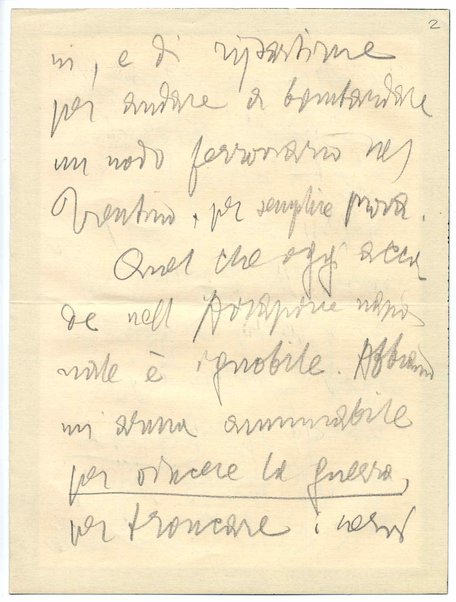 2
ni, e di ripartirne
per andare a bombardare
un nodo ferroviario nel
Trentino, per semplice prova.
Quel che oggi acca
de nell'Aviazione nazio
nale è ignobile. Abbiamo
un'arma ammirabile
per vincere la guerra,
per troncare i nervi